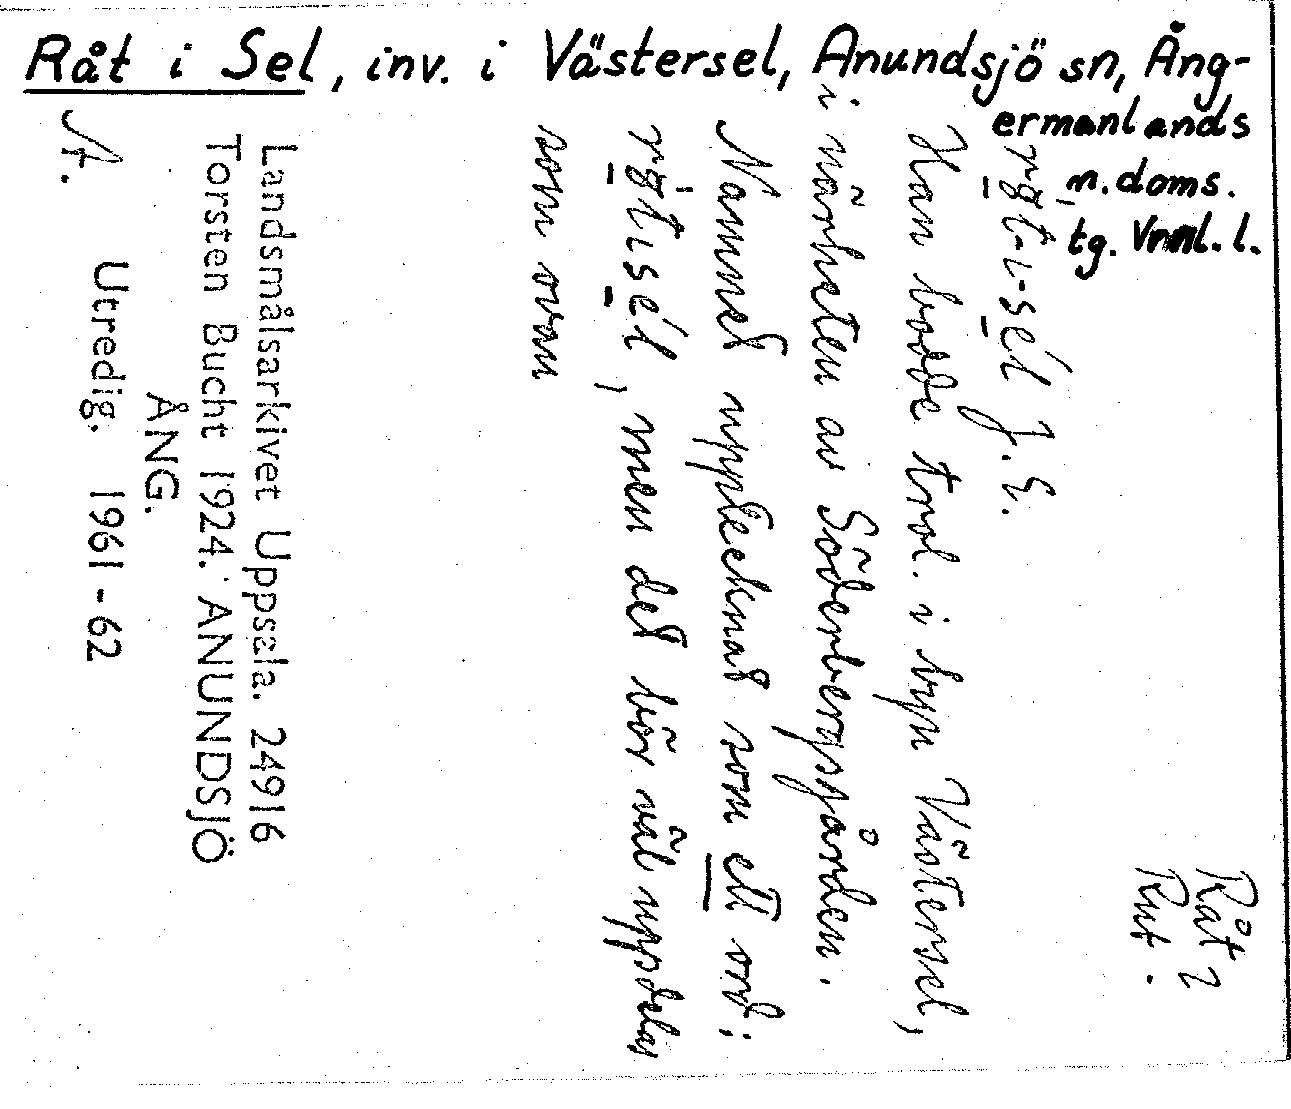 Råt i Sel, inv. i Västersel, Anundsjö sn, Ång-
ermanlands
n. doms.
tg. Vnnl. l.
Råt?
Rut.
rgt-ı-sél J. E.
Han bodde trol. i byn Västersel,
i närheten av Söderbergsgården.
Namnet upptecknat som ett ord;
rgtısél, men det bör väl uppdelas
som ovan
Landsmålsarkivet Uppsala. 24916
Torsten Bucht 1924. ANUNDSJÖ
ÅNG.
Utredig. 1961-62